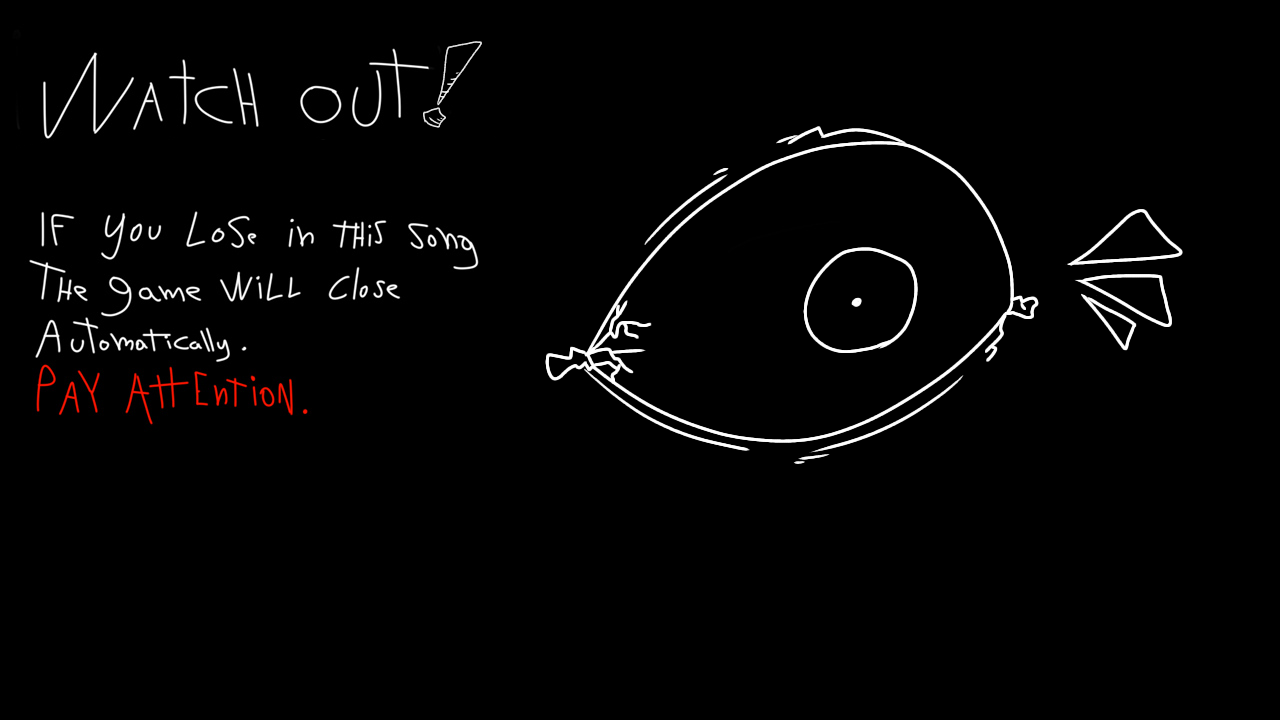 WATCH OUT!
IF YOU LOSE in THiS Song
THe game WiLL Close
Automatically.
PAY ATTEnTiON.